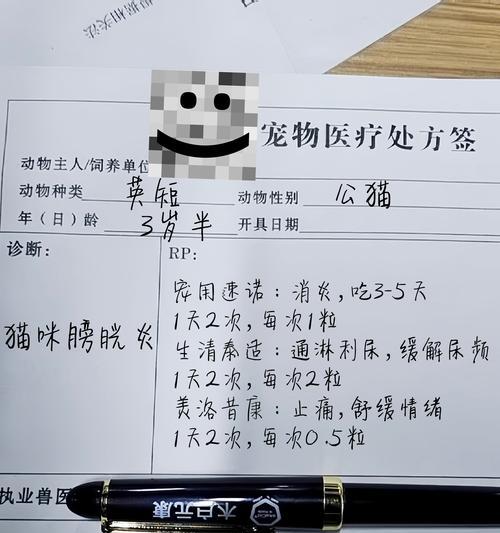 根据相关法
宠物医疗处方签
动物主人/饲养单位
动物种类 英短 动物性别 公猫
年（日）龄 3岁半 开具日期
诊断： RP:
猫咪膀胱炎
宠用速诺：消炎，吃3-5天
1天2次，每次1粒
生清泰适：通淋利尿，缓解尿频
1天2次，每次2粒
美洛昔康：止痛，舒缓情绪
1天2次，每次0.5粒
执业兽医
木户元康